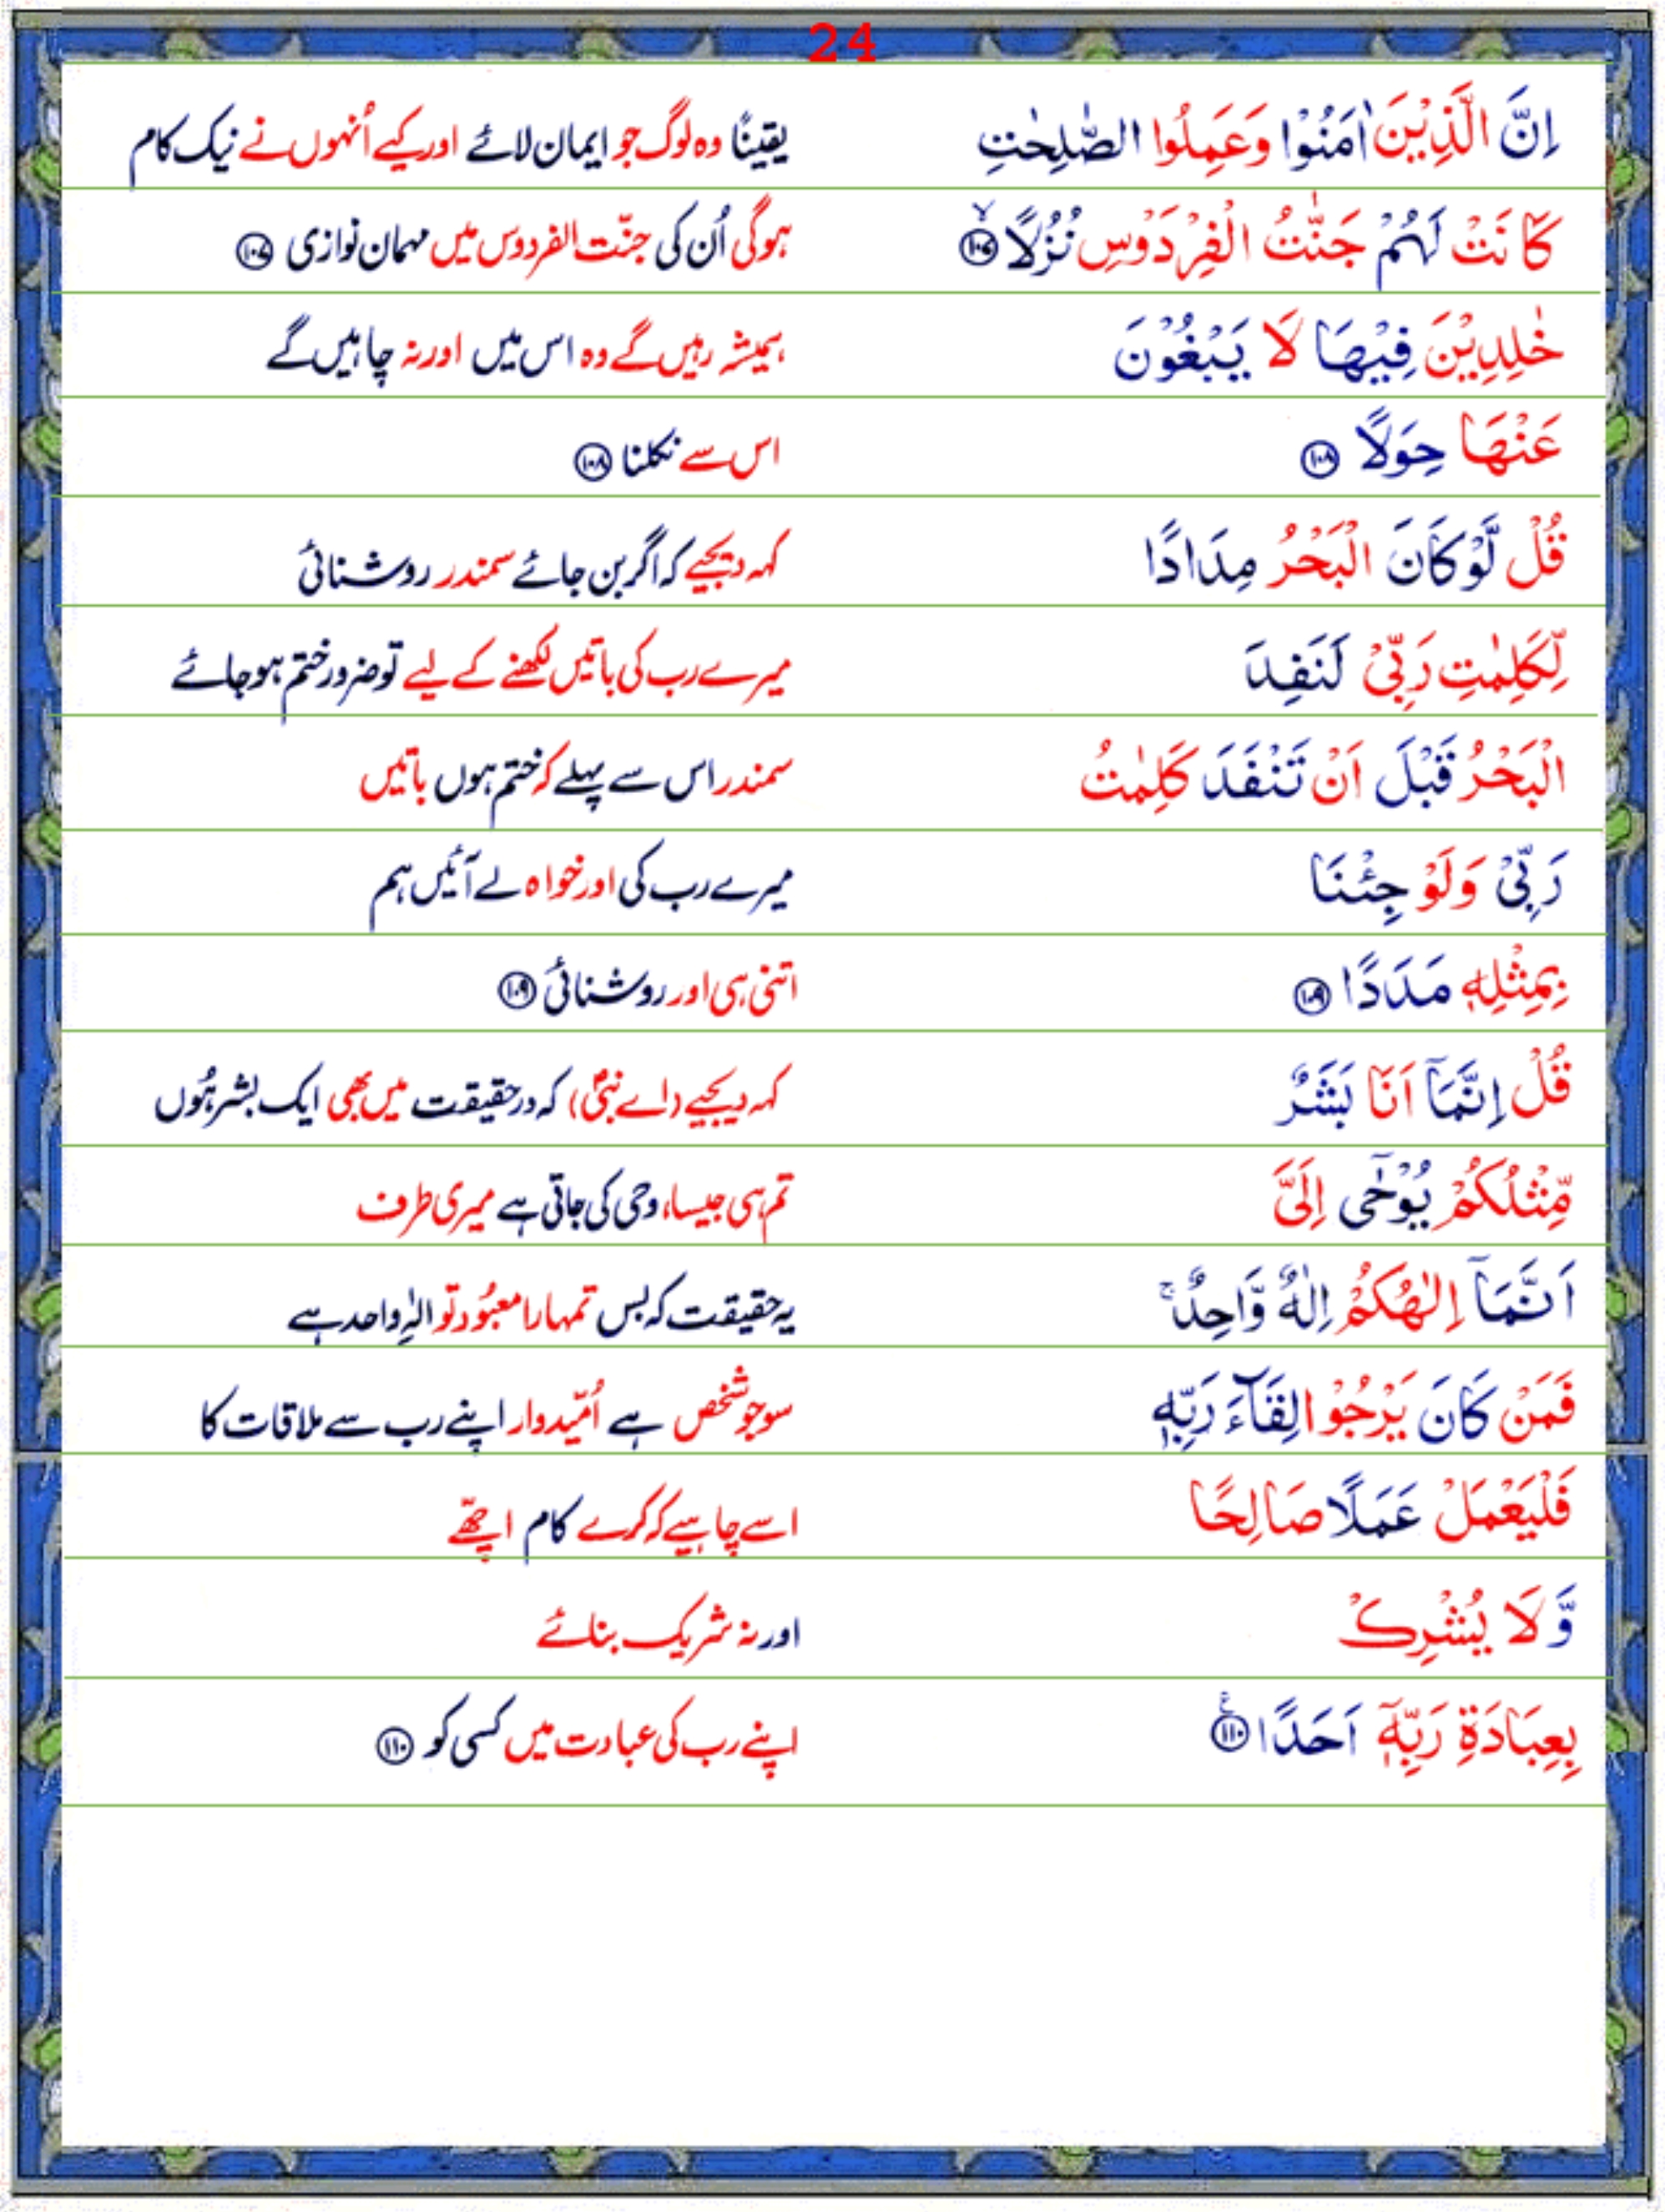 24
اِنَّ الَّذِيْنَ اٰمَنُوْا وَعَمِلُوا الصّٰلِحٰتِ یقیناً وہ لوگ جو ایمان لائے اور کیے اُنہوں نے نیک کام
كَانَتْ لَهُمْ جَنّٰتُ الْفِرْدَوْسِ نُزُلًا ۙ‏﴿۱۰۷﴾ ہوگی اُن کی جنّت الفردوس میں مہمان نوازی ﴿۱۰۷﴾
خٰلِدِيْنَ فِيْهَا لَا يَبْغُوْنَ ہمیشہ رہیں گے وہ اس میں اور نہ چاہیں گے
عَنْهَا حِوَلًا ﴿۱۰۸﴾ اس سے نکلنا ﴿۱۰۸﴾
قُلْ لَّوْ كَانَ الْبَحْرُ مِدَادًا کہہ دیجیے کہ اگر بن جائے سمندر روشنائی
لِّكَلِمٰتِ رَبِّيْ لَنَفِدَ میرے رب کی باتیں لکھنے کے لیے تو ضرور ختم ہو جائے
الْبَحْرُ قَبْلَ اَنْ تَنْفَدَ كَلِمٰتُ سمندر اس سے پہلے کہ ختم ہوں باتیں
رَبِّيْ وَلَوْ جِئْنَا میرے رب کی اور خواہ لے آئیں ہم
بِمِثْلِهٖ مَدَدًا ﴿۱۰۹﴾ اتنی ہی اور روشنائی ﴿۱۰۹﴾
قُلْ اِنَّمَآ اَنَا بَشَرٌ کہہ دیجیے (اے نبیؐ) کہ درحقیقت میں بھی ایک بشر ہُوں
مِّثْلُكُمْ يُوْحٰٓى اِلَيَّ تم ہی جیسا، وحی کی جاتی ہے میری طرف
اَنَّمَآ اِلٰهُكُمْ اِلٰهٌ وَّاحِدٌ ۚ یہ حقیقت کہ بس تمہارا معبُود تو الٰہِ واحد ہے
فَمَنْ كَانَ يَرْجُوْا لِقَآءَ رَبِّهٖ سو جو شخص ہے اُمّیدوار اپنے رب سے ملاقات کا
فَلْيَعْمَلْ عَمَلًا صَالِحًا اسے چاہیے کہ کرے کام اچھّے
وَّلَا يُشْرِكْ اور نہ شریک بنائے
بِعِبَادَةِ رَبِّهٖٓ اَحَدًا ﴿۱۱۰﴾ ع اپنے رب کی عبادت میں کسی کو ﴿۱۱۰﴾